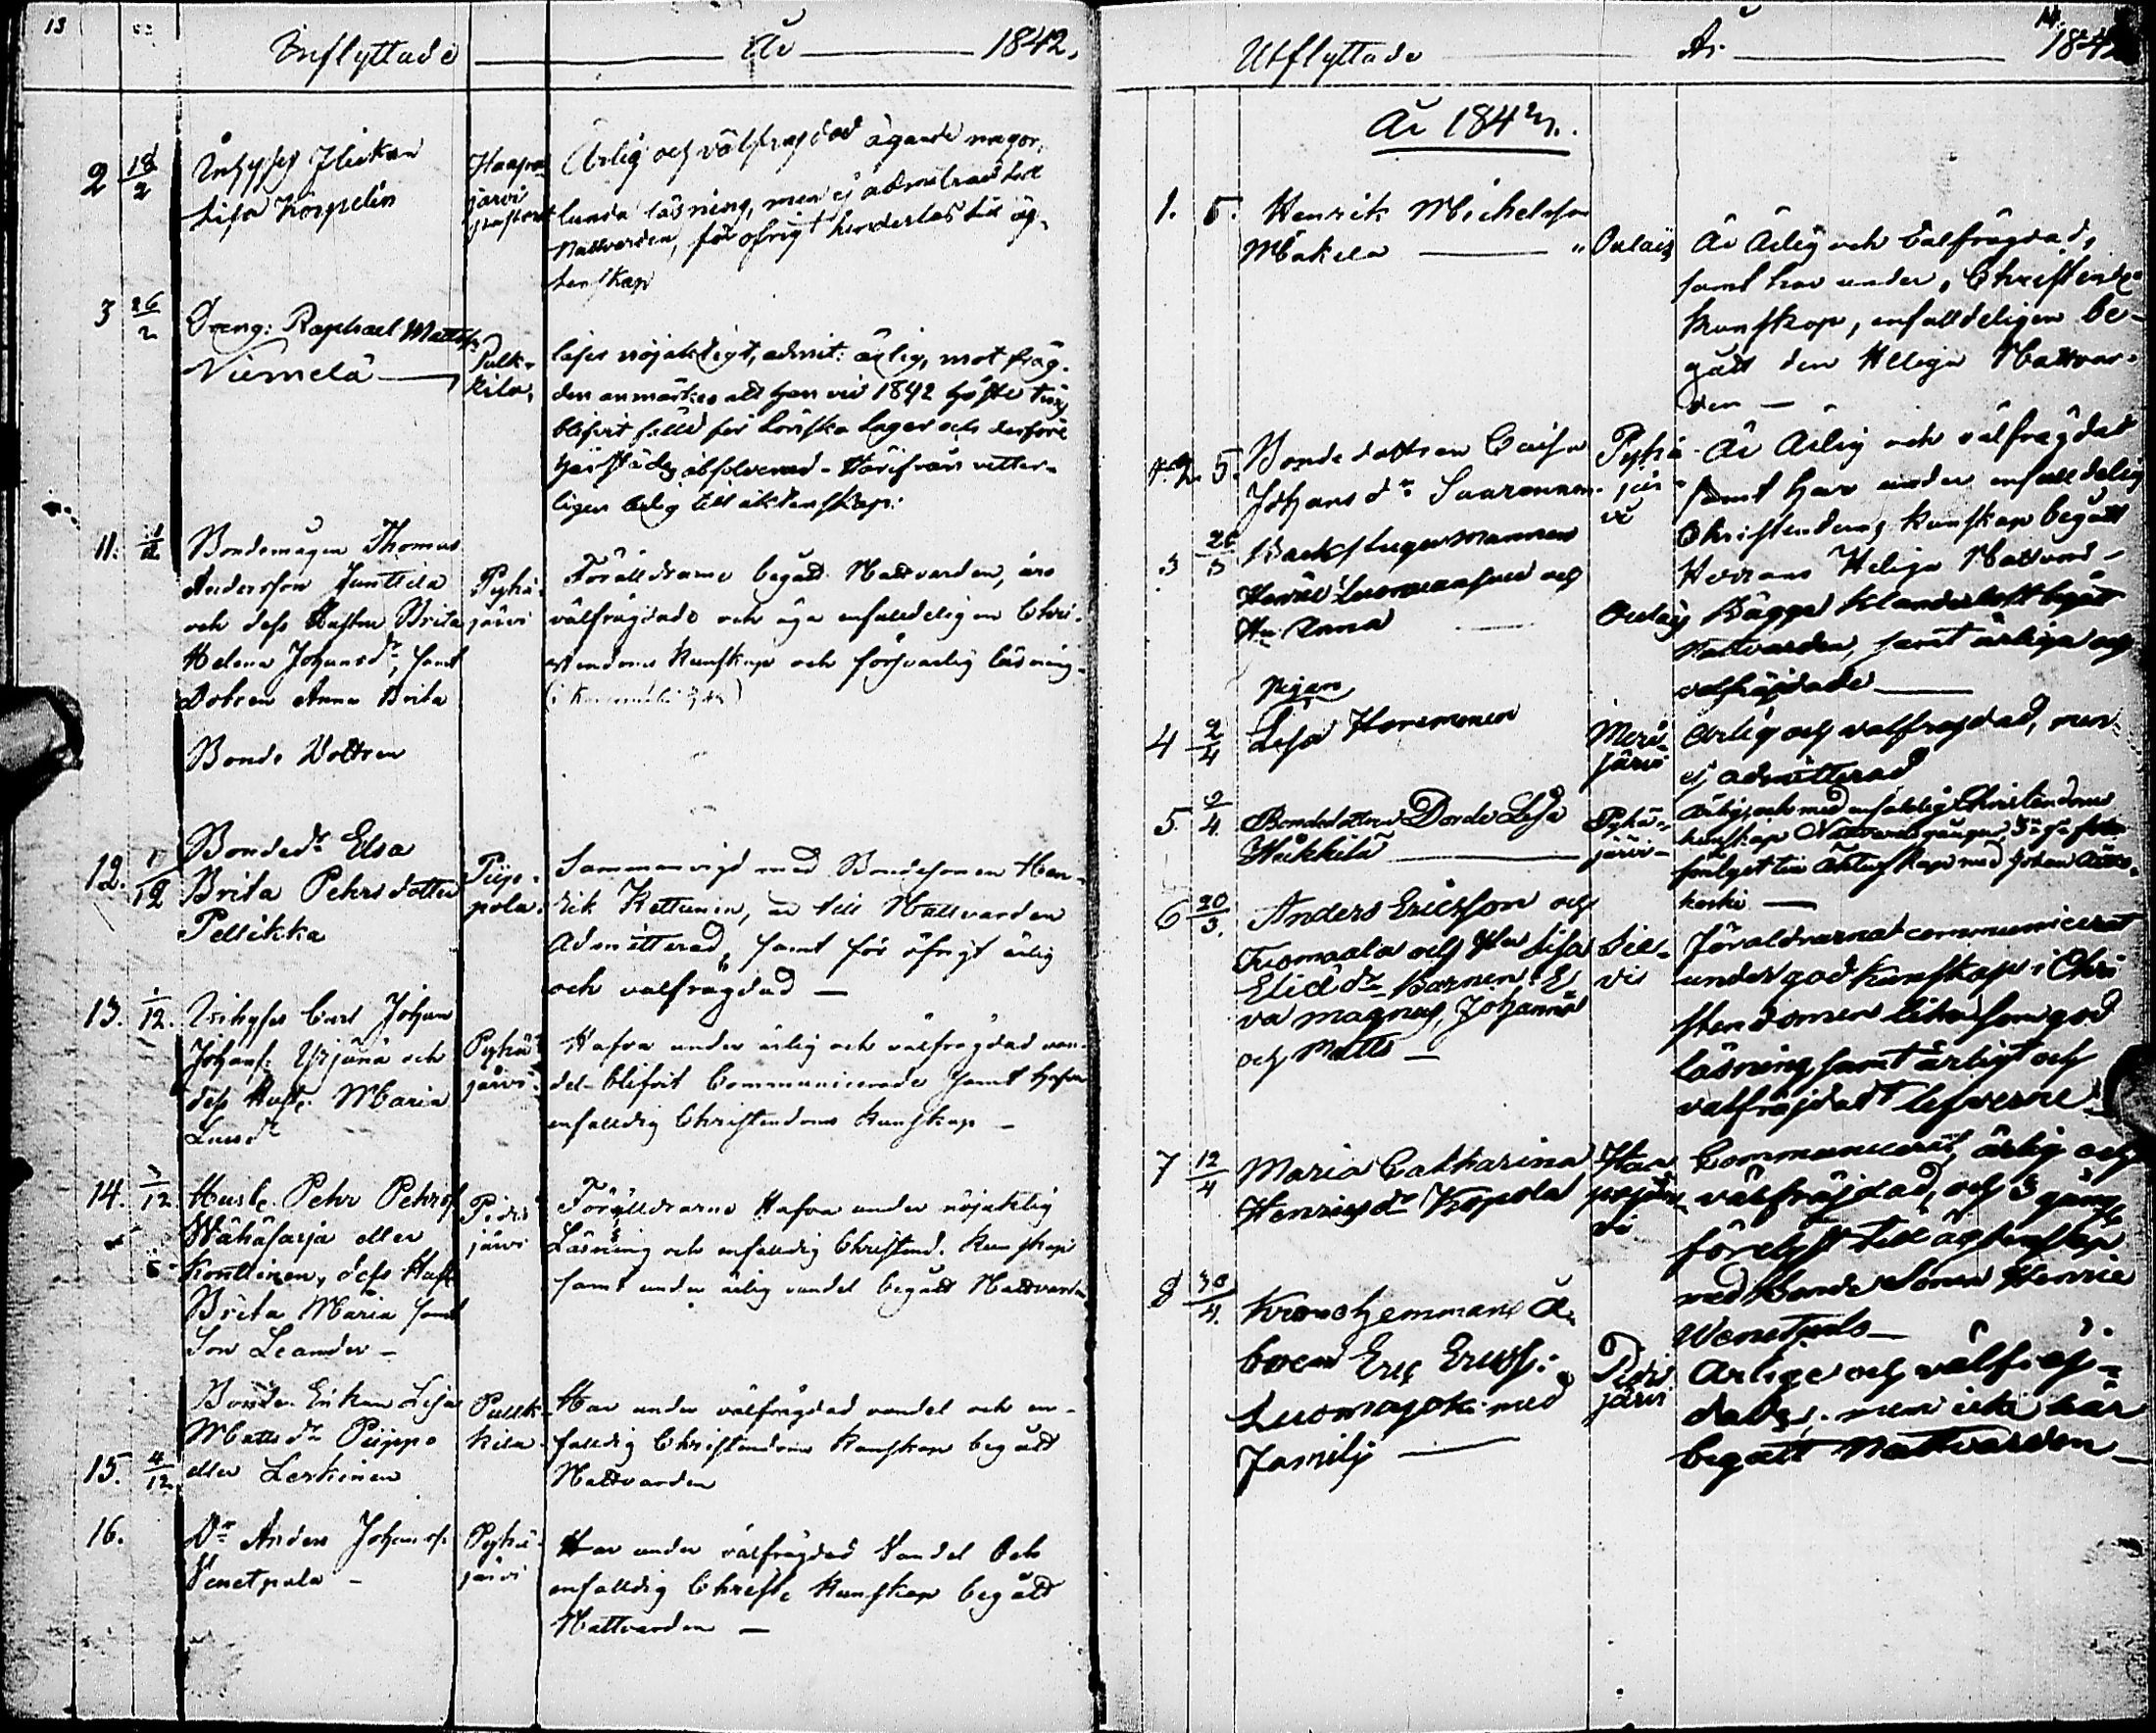 13
Inflyttade År 1842.
2 18/2 Inhyses Flickan Haapa-
Lisa Korpelin järvi
Ärlig och välfrejdad ägande någor-
lunda läsning, men ej admitterad till
Nattvarden, för öfrigt hinderlös till äg-
tenskap
3 26/2 Dreng: Raphael Mattss:
Niemelä Pulk-
kila,
läser nöjaktigt, admit: ärlig, mot fräg-
den anmärkes att han vid 1842 höste ting
blifvit fälld för Lönska Lager och derföre
härstädes absolverad - Härifrån vitter-
ligen ledig till äktenskap:
11. Bondemågen Thomas
Andersson Junttila Pyhä-
och dess Hustru Brita järvi
Helena Johansdr, samt
Dottren Anna Brita
Föräldrarne begått Nattvarden, äro
välfrägdade och äga enfaldeligen Chri-
stendoms Kunskap och försvarlig läsning-
Bonde Dottren
12. 1/12 Bondedr Elsa
Brita Pehrsdotter Piippo-
Pellikka pola.
Sammanvigd med Bondesonen Hen-
rik Kettunen, är till Nattvarden
Admitterad, samt för öfrigt ärlig
och välfrägdad —
13. 1/12. Inhyses Carl Johan
Johanss: Yrjänä och Pyhä-
dess Hust: Maria järvi
Larsdr
Hafva under ärlig och välfrägdad van-
del blifvit Communicerade samt hafva
enfalldig Christendoms Kunskap —
14. 3/12 Husb: Pehr Pehrss:
Wähäsarja eller Pidis
Konttinen, dess Hust: järvi
Brita Maria samt
Son Leander —
Föräldrarne Hafva under nöjaktig
Läsning och enfalldig Christend. Kunskap
samt under ärlig vandel begått Nattvarden
Bonde Enkan Lisa Pulk-
Mattsdr Piippo kila
15. 4/12 eller Leskinen
Har under välfrägdad vandel och en-
falldig Christendoms Kunskap begått
Nattvarden
16. Dr Anders Johanss: Pyhä-
Venetpalo — järvi
Har under välfrägdad Vandel Och
enfalldig Christ: Kunskap begått
Nattvarden —
14.
Utflyttade År 1842
År 1842.
1. 5. Henrik Michelsson
Mäkelä — " Oulais
Är Ärlig och Välfrägdad,
samt har under, Christendoms
Kunskap, enfalldeligen be-
gått den Heliga Nattvar-
den —
2. 5. Bondedottren Caisa Pyhä-
Johansdr Saaronen jär-
vi
Är Ärlig och välfrägdad
samt har under enfalldelig
Christendoms Kunskap begått
Herrans Heliga Nattvard —
3 Backstugumannen
och
Hu Anna Oulais
Bägge klanderlöst begått
Nattvarden, samt ärliga och
välfrejdade —
pigan
4 2/4 Lisa Honemonen Meri-
järvi
Ärlig och välfrejdad, men
ej admitterad
5. 9/4. Bondedottren Lisa Pyhä-
Häkkilä — järvi —
Ärlig, och med enfaldig Christendoms
kunskap Nattvardsgången 3ne gr
förlyst till Äktenskap med Johan
koski —
6 20/3. Anders Ericsson och
Tuomaala och Hu Lisa Sie-
Elia dr Barnen: E- vi
va Magnus, Johannes
och Matts —
Föräldrarna communicerat
under god kunskap i Chri
stendomen likasom god
läsning samt ärligt och
välfrejdadt lefverne
7 12/4 Maria Catharina Haa
Henricsdr Kopola pajär-
vi
Communicerat, ärlig och
välfrejdad, och 3 gång
förelyst till ägtenskap
med Bonde Sonen Henric
Wenetpalo —
8 30/4. Kronohemmans å-
boen Eric Ericss: Pidis
Luomajoki med järvi
familj —
Ärlige och välfrej-
dade, men icke här
begått Nattvarden —